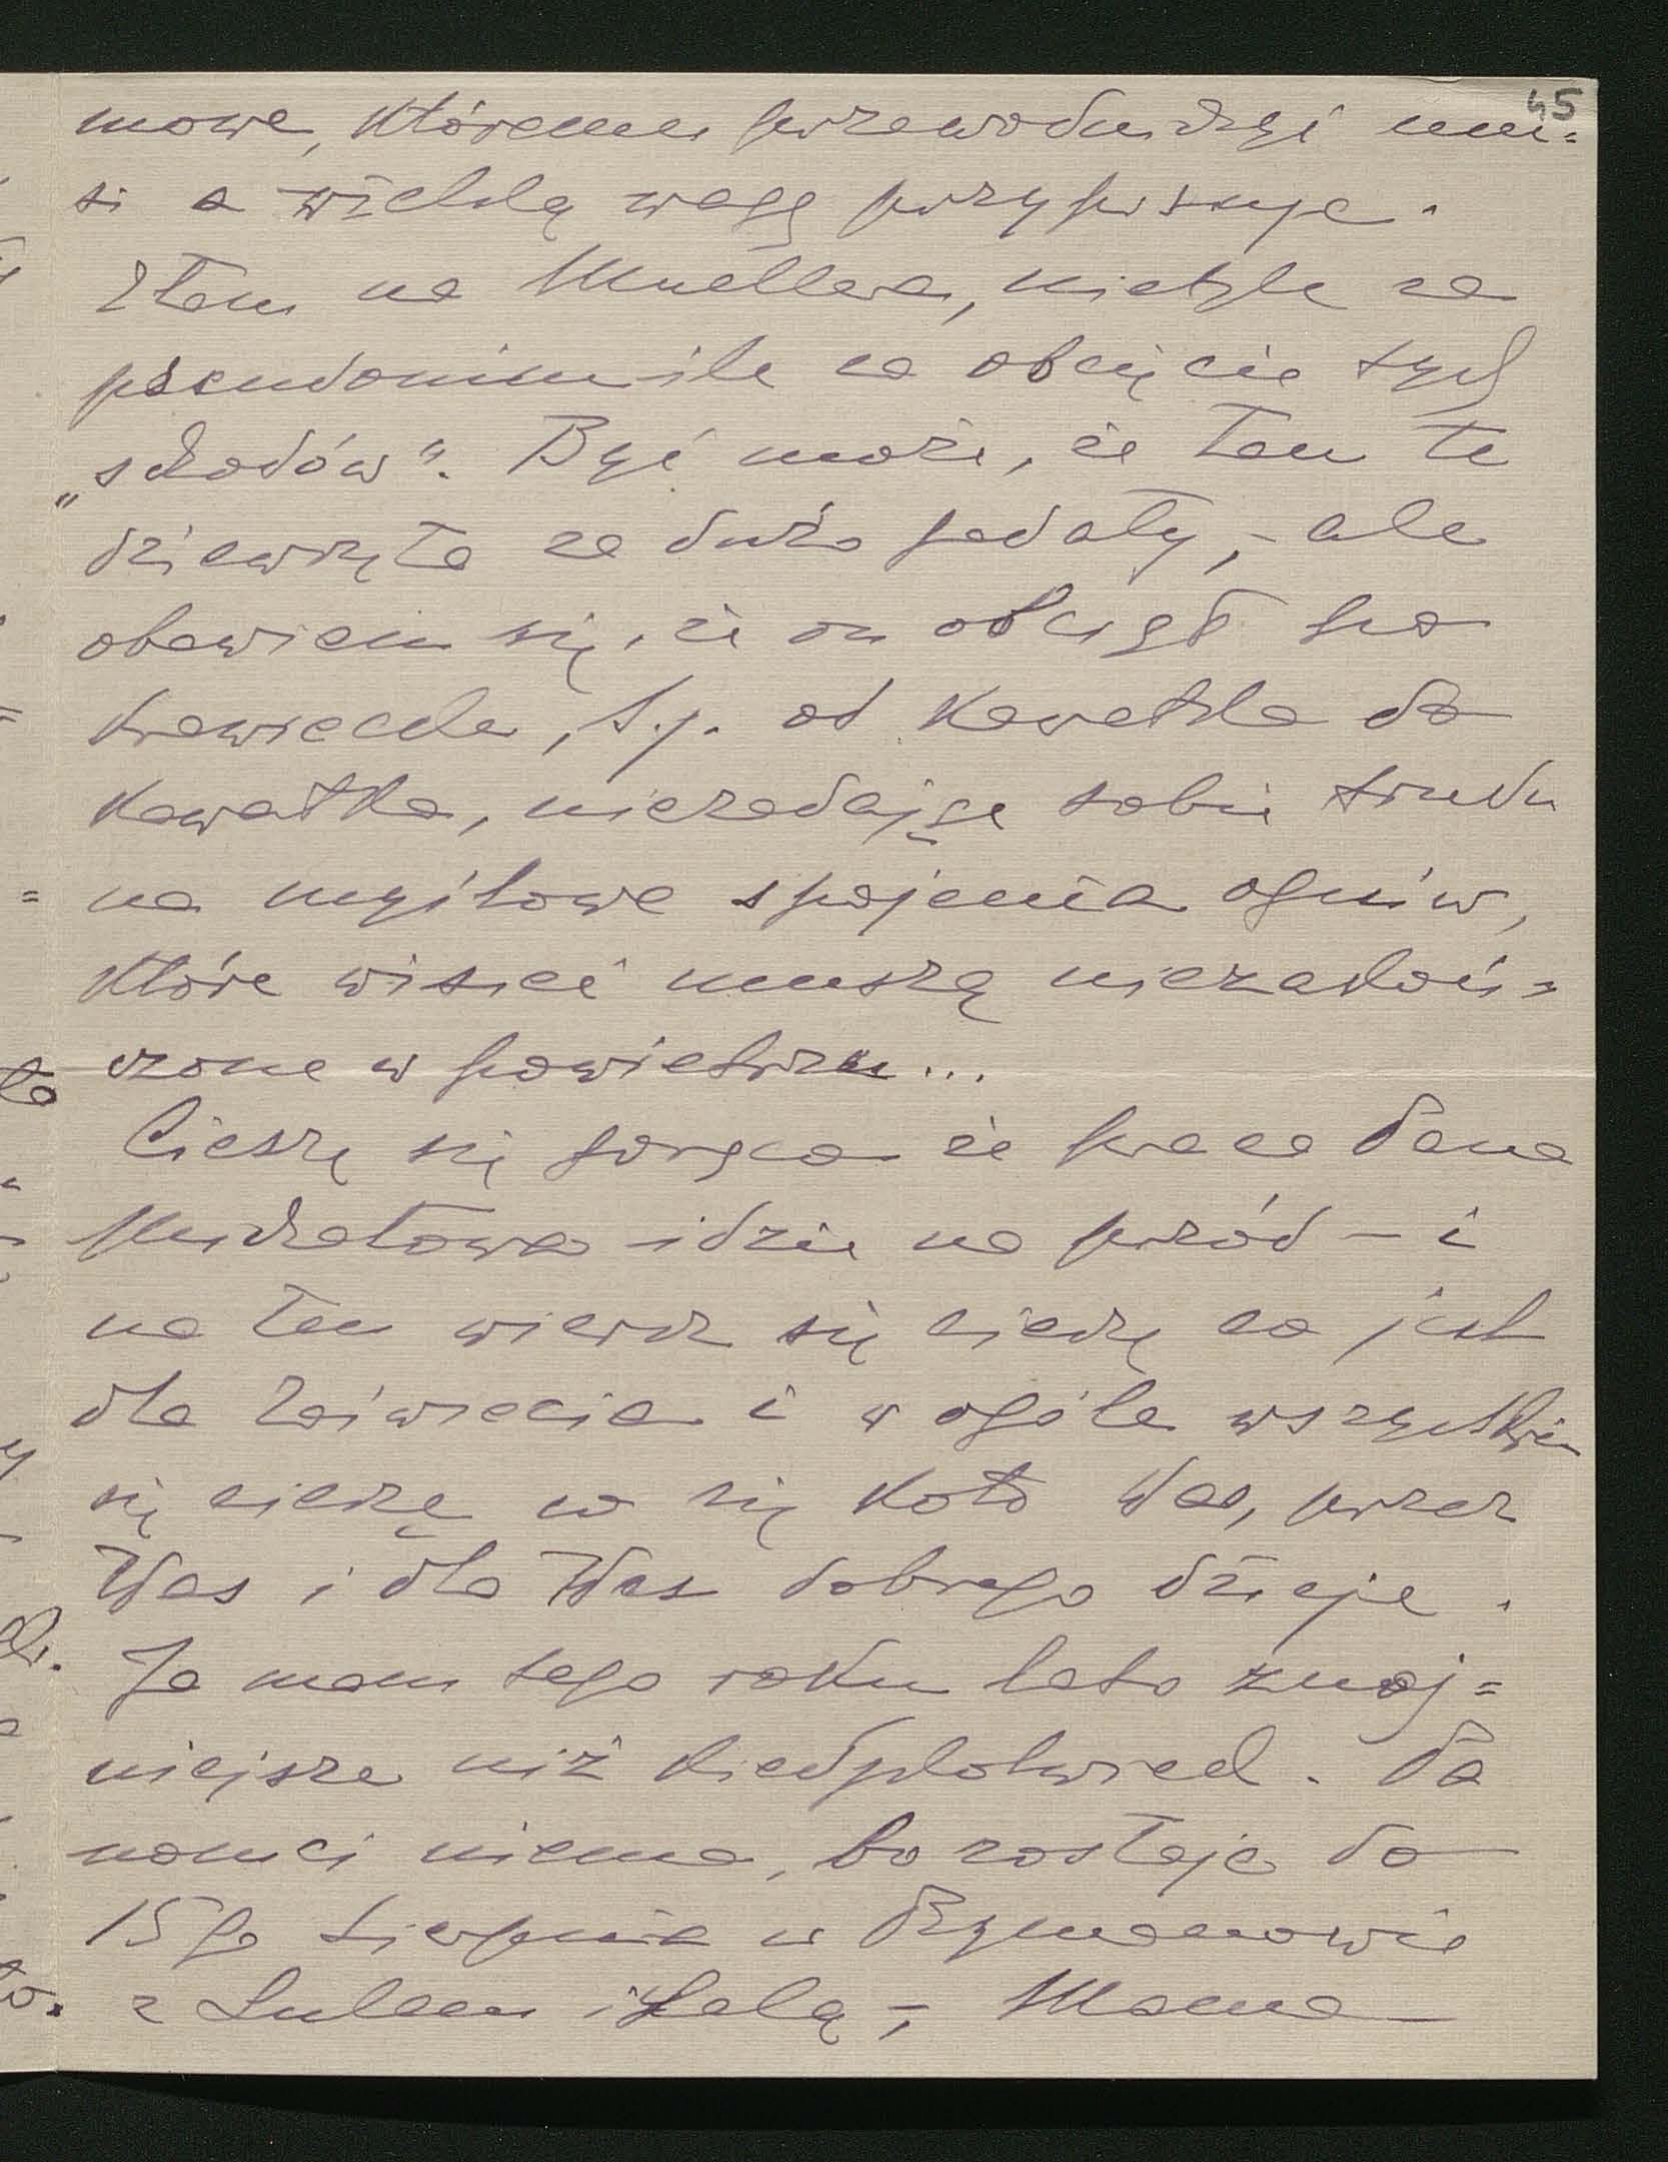 45
mowe, któremu przewodniczyć mu=
si a wielką wagę przypisuje.
Złam na Muellera, nietyle za
pseudonim ile za obcięcie tych
„schodów". Być może, że tam te
dziewczęta za dużo gadały, – ale
obawiam się, że on obciął po
krawiecku, t.j. od kawałka do
kawałka, niezadając sobie trudu
na myślowe spojenia ogniw,
które wisieć muszą niezakoń=
czone w powietrzu...
Cieszę się gorąco że praca Pana
idzie na przód – i
na ten wiersz się cieszę co jest
dla i w ogóle wszystkim
się cieszę co się koło Was, przez
Was i dla Was dobrego dzieje.
Ja mam tego roku lato znoj=
niejsze niż kiedykolwiek. Pa
nonci niema, bo zostaje do
15go sierpnia w Rymanowie
z Lulem i Lalą, – Mama